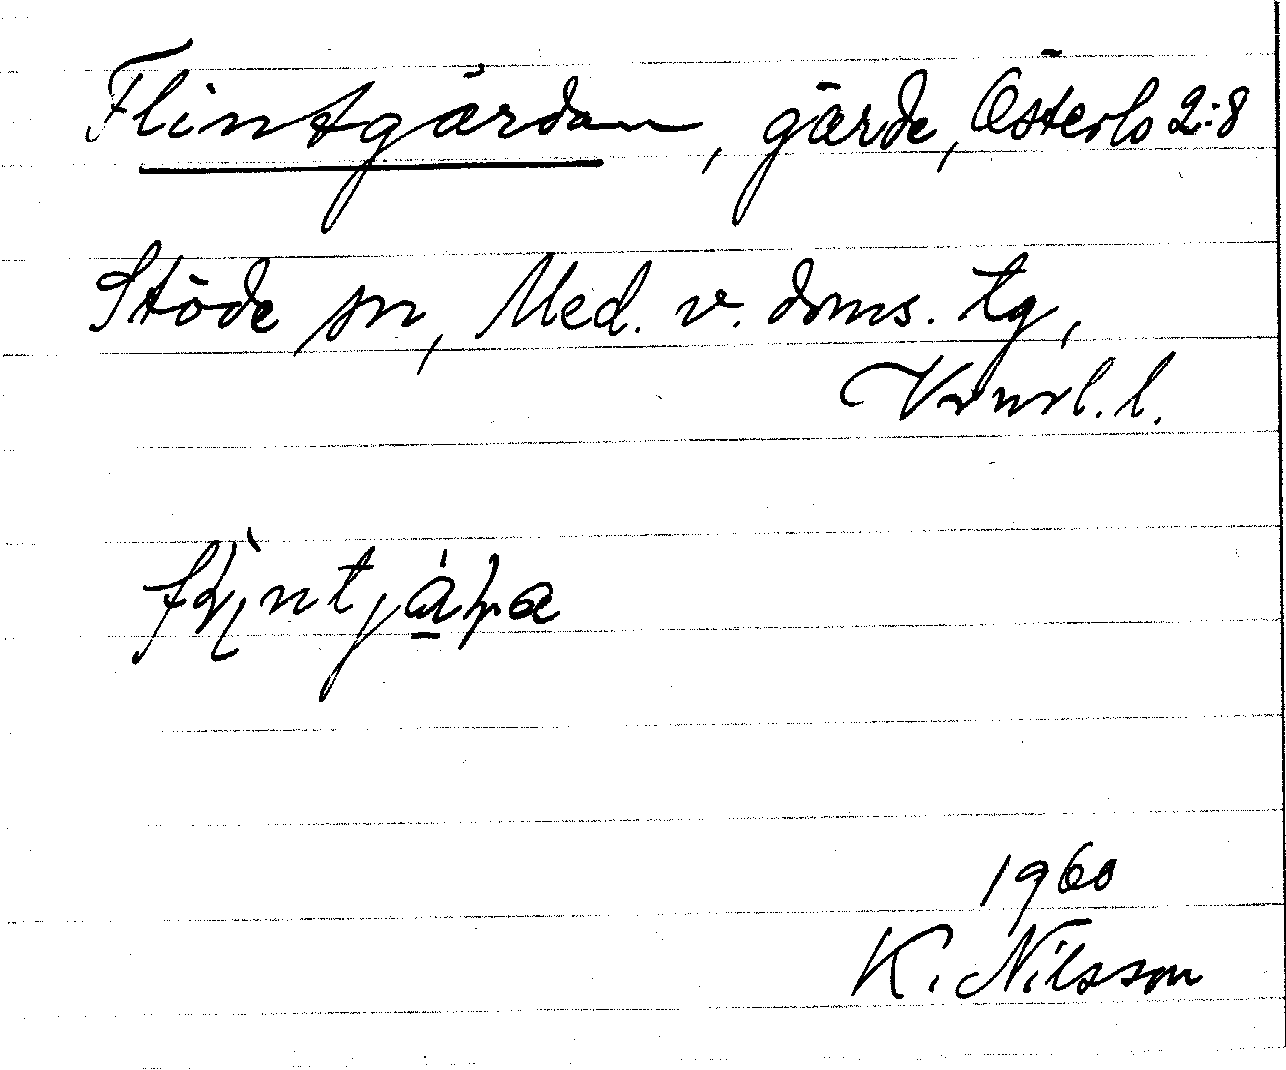 Flintgärdan, gärde, Österlo 2:8
Stöde sn, Med. v. doms. tg,
Vrnrl. l.
1960
K. Nilsson